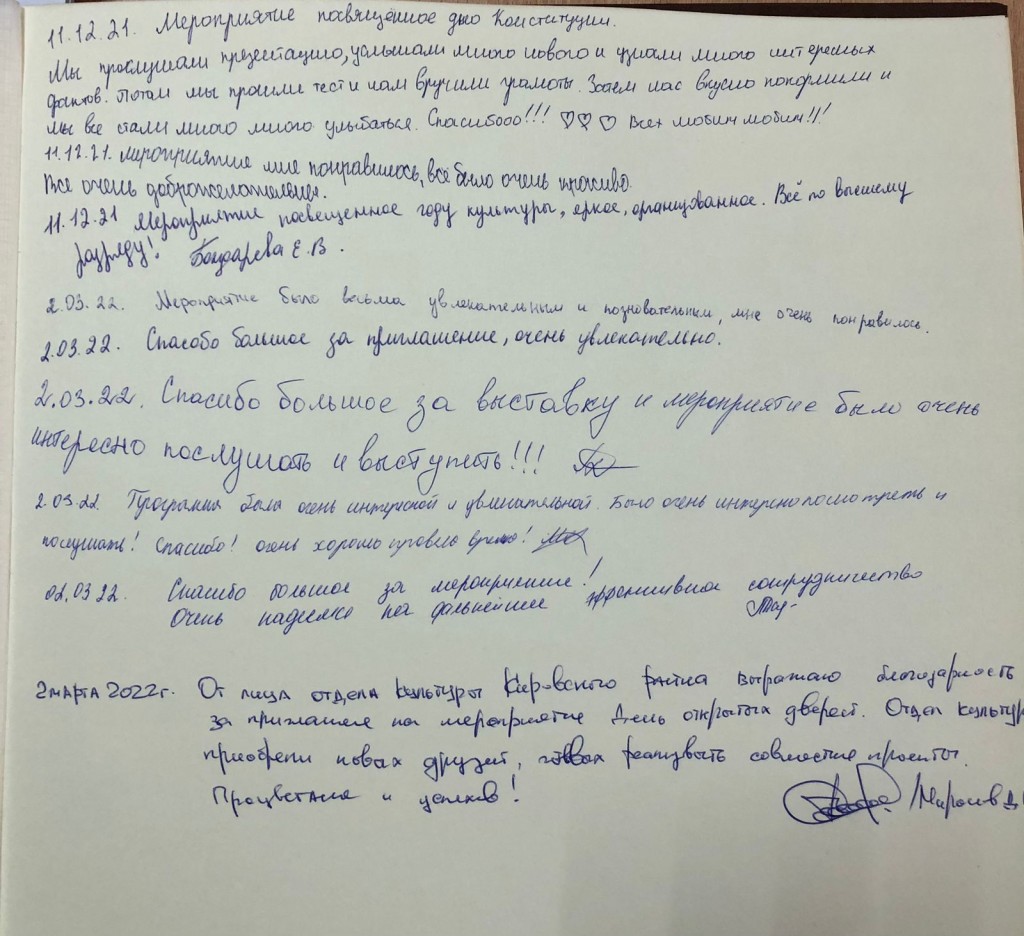 11.12.21. Мероприятие посвящённое дню Конституции.
Мы прослушали презентацию, услышали много нового и узнали много интересных
фактов. Потом мы прошли тест и нам вручили грамоты. Затем нас вкусно покормили и
мы все стали много много улыбаться. Спасибооо!!! ♡♡♡ Всех любим любим!!!
11.12.21. мероприятие мне понравилось, всё было очень красиво.
Все очень доброжелательные.
11.12.21 Мероприятие посвещенное году культуры, яркое, организованное. Всё по высшему
разряду! Бондарева Е.В.
2.03.22. Мероприятие было весьма увлекательным и позновательным, мне очень понравилось.
2.03.22. Спасобо большое за приглашение, очень увлекательно.
2.03.22. Спасибо большое за выставку и мероприятие было очень
интересно послушать и выступать!!!
2.03.22. Программа была очень интересной и увлекательной. Было очень интересно посмотреть и
послушать! Спасибо! очень хорошо провели время!
02.03 22. Спасибо большое за мероприятие!
Очень надеемся на дальнейшее эффективное сотрудничество
2 марта 2022 г. От лица отдела культуры Кировского выражаю благодарность
за приглашение на мероприятие День открытых дверей. Отдел культур
приобрели новых друзей, готовых реализовать совместные проекты.
Процветания и успехов!